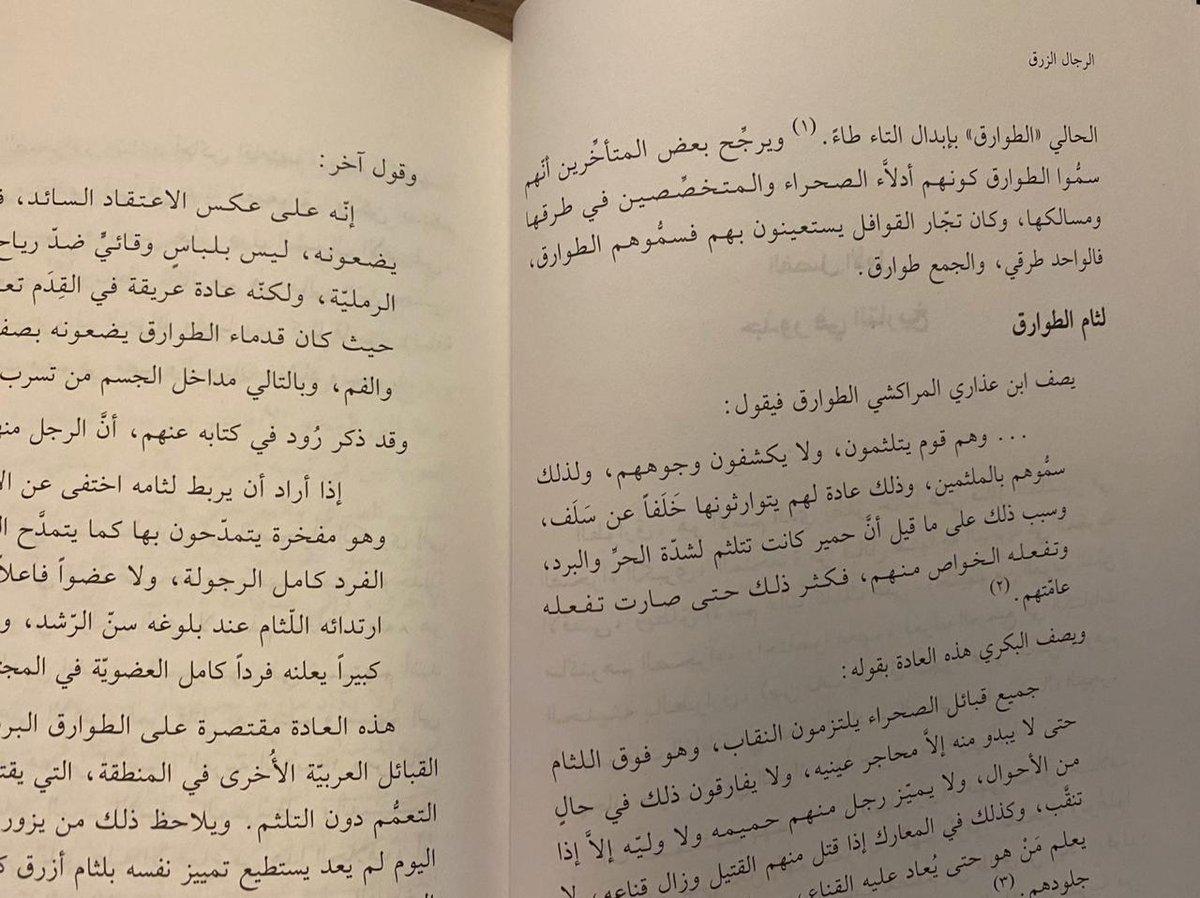 الرجال الزرق
الحالي «الطوارق» بإبدال التاء طاءً. (١) ويرجِّح بعض المتأخِّرين أنّهم
سمُّوا الطوارق كونهم أدلاَّء الصحراء والمتخصِّصين في طرقها
ومسالكها، وكان تجّار القوافل يستعينون بهم فسمُّوهم الطوارق،
فالواحد طرقي، والجمع طوارق.
لثام الطوارق
يصف ابن عذاري المراكشي الطوارق فيقول:
... وهم قوم يتلثمون، ولا يكشفون وجوههم، ولذلك
سمُّوهم بالملثمين، وذلك عادة لهم يتوارثونها خَلَفاً عن سَلَف،
وسبب ذلك على ما قيل أنَّ حمير كانت تتلثم لشدّة الحرِّ والبرد،
وتفعله الخواص منهم، فكثر ذلك حتى صارت تفعله
عامّتهم. (٢)
ويصف البكري هذه العادة بقوله:
جميع قبائل الصحراء يلتزمون النقاب، وهو فوق اللثام
حتى لا يبدو منه إلاَّ محاجر عينيه، ولا يفارقون ذلك في حالٍ
من الأحوال، ولا يميّز رجل منهم حميمه ولا وليّه إلاَّ إذا
تنقَّب، وكذلك في المعارك إذا قتل منهم القتيل وزال قناعه، لا
يعلم مَنْ هو حتى يُعاد عليه القناع
جلودهم. (٣)
وقول آخر:
إنّه على عكس الاعتقاد السائد،
يضعونه، ليس بلباسٍ وقائيٍّ ضدّ رياح
الرمليّة، ولكنّه عادة عريقة في القِدَم
حيث كان قدماء الطوارق يضعونه
والفم، وبالتالي مداخل الجسم من تسرب
وقد ذكر رُود في كتابه عنهم، أنَّ الرجل
إذا أراد أن يربط لثامه اختفى عن
وهو مفخرة يتمدّحون بها كما يتمدَّح
الفرد كامل الرجولة، ولا عضواً فاعلاً
ارتدائه اللّثام عند بلوغه سنّ الرّشد،
كبيراً يعلنه فرداً كامل العضويّة في
هذه العادة مقتصرة على الطوارق
القبائل العربيّة الأُخرى في المنطقة، التي
التعمُّم دون التلثم. ويلاحظ ذلك من يزور
اليوم لم يعد يستطيع تمييز نفسه بلثام أزرق